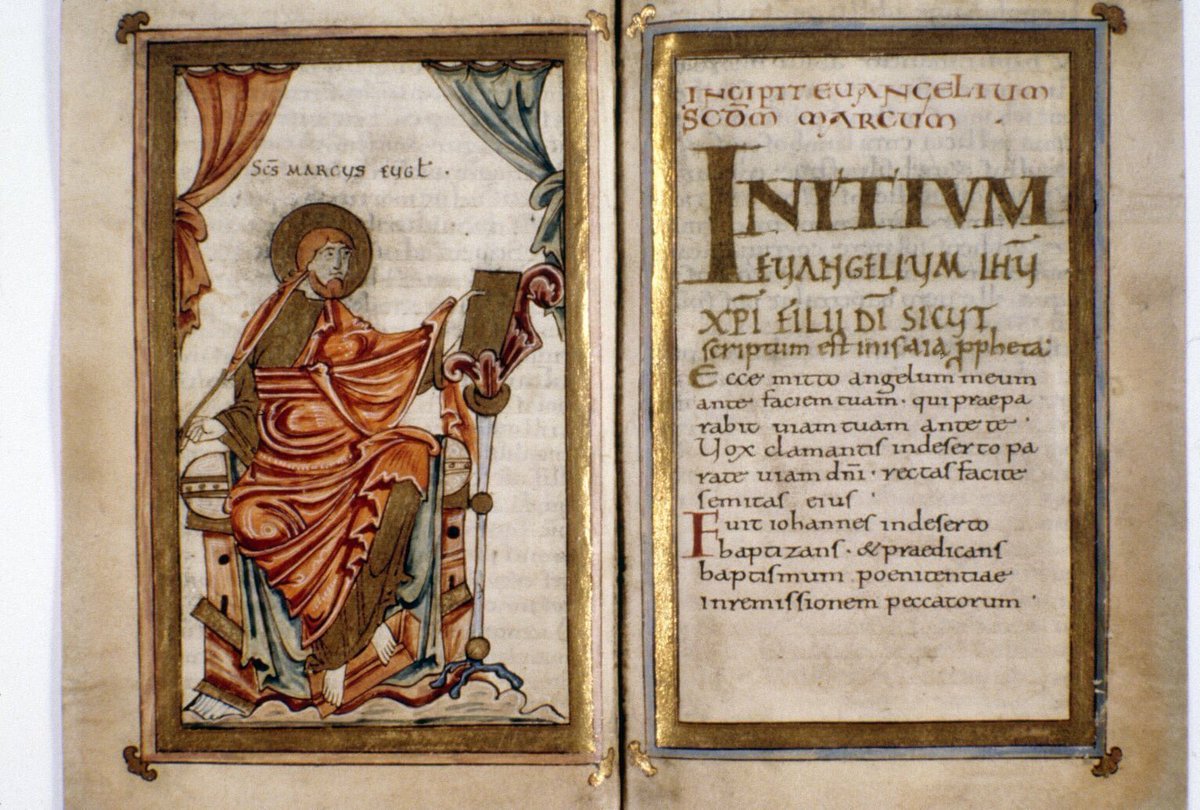 SC̄S MARCUS EUGL̄ ·
INCIPIT EUANGELIUM
SCDM̄ MARCUM ·
INITIUM
EUANGELIUM IHŪ
XP̄I FILII DĪ SICUT
scriptum est in isaia ꝓpheta·
Ecce mitto angelum meum
ante faciem tuam · qui praepa
rabit uiam tuam ante te ·
Uox clamantis in deserto pa
rate uiam dn̄i · rectas facite
semitas eius ·
Fuit iohannes in deserto
baptizans · & praedicans
baptismum poenitentiae
in remissionem peccatorum ·